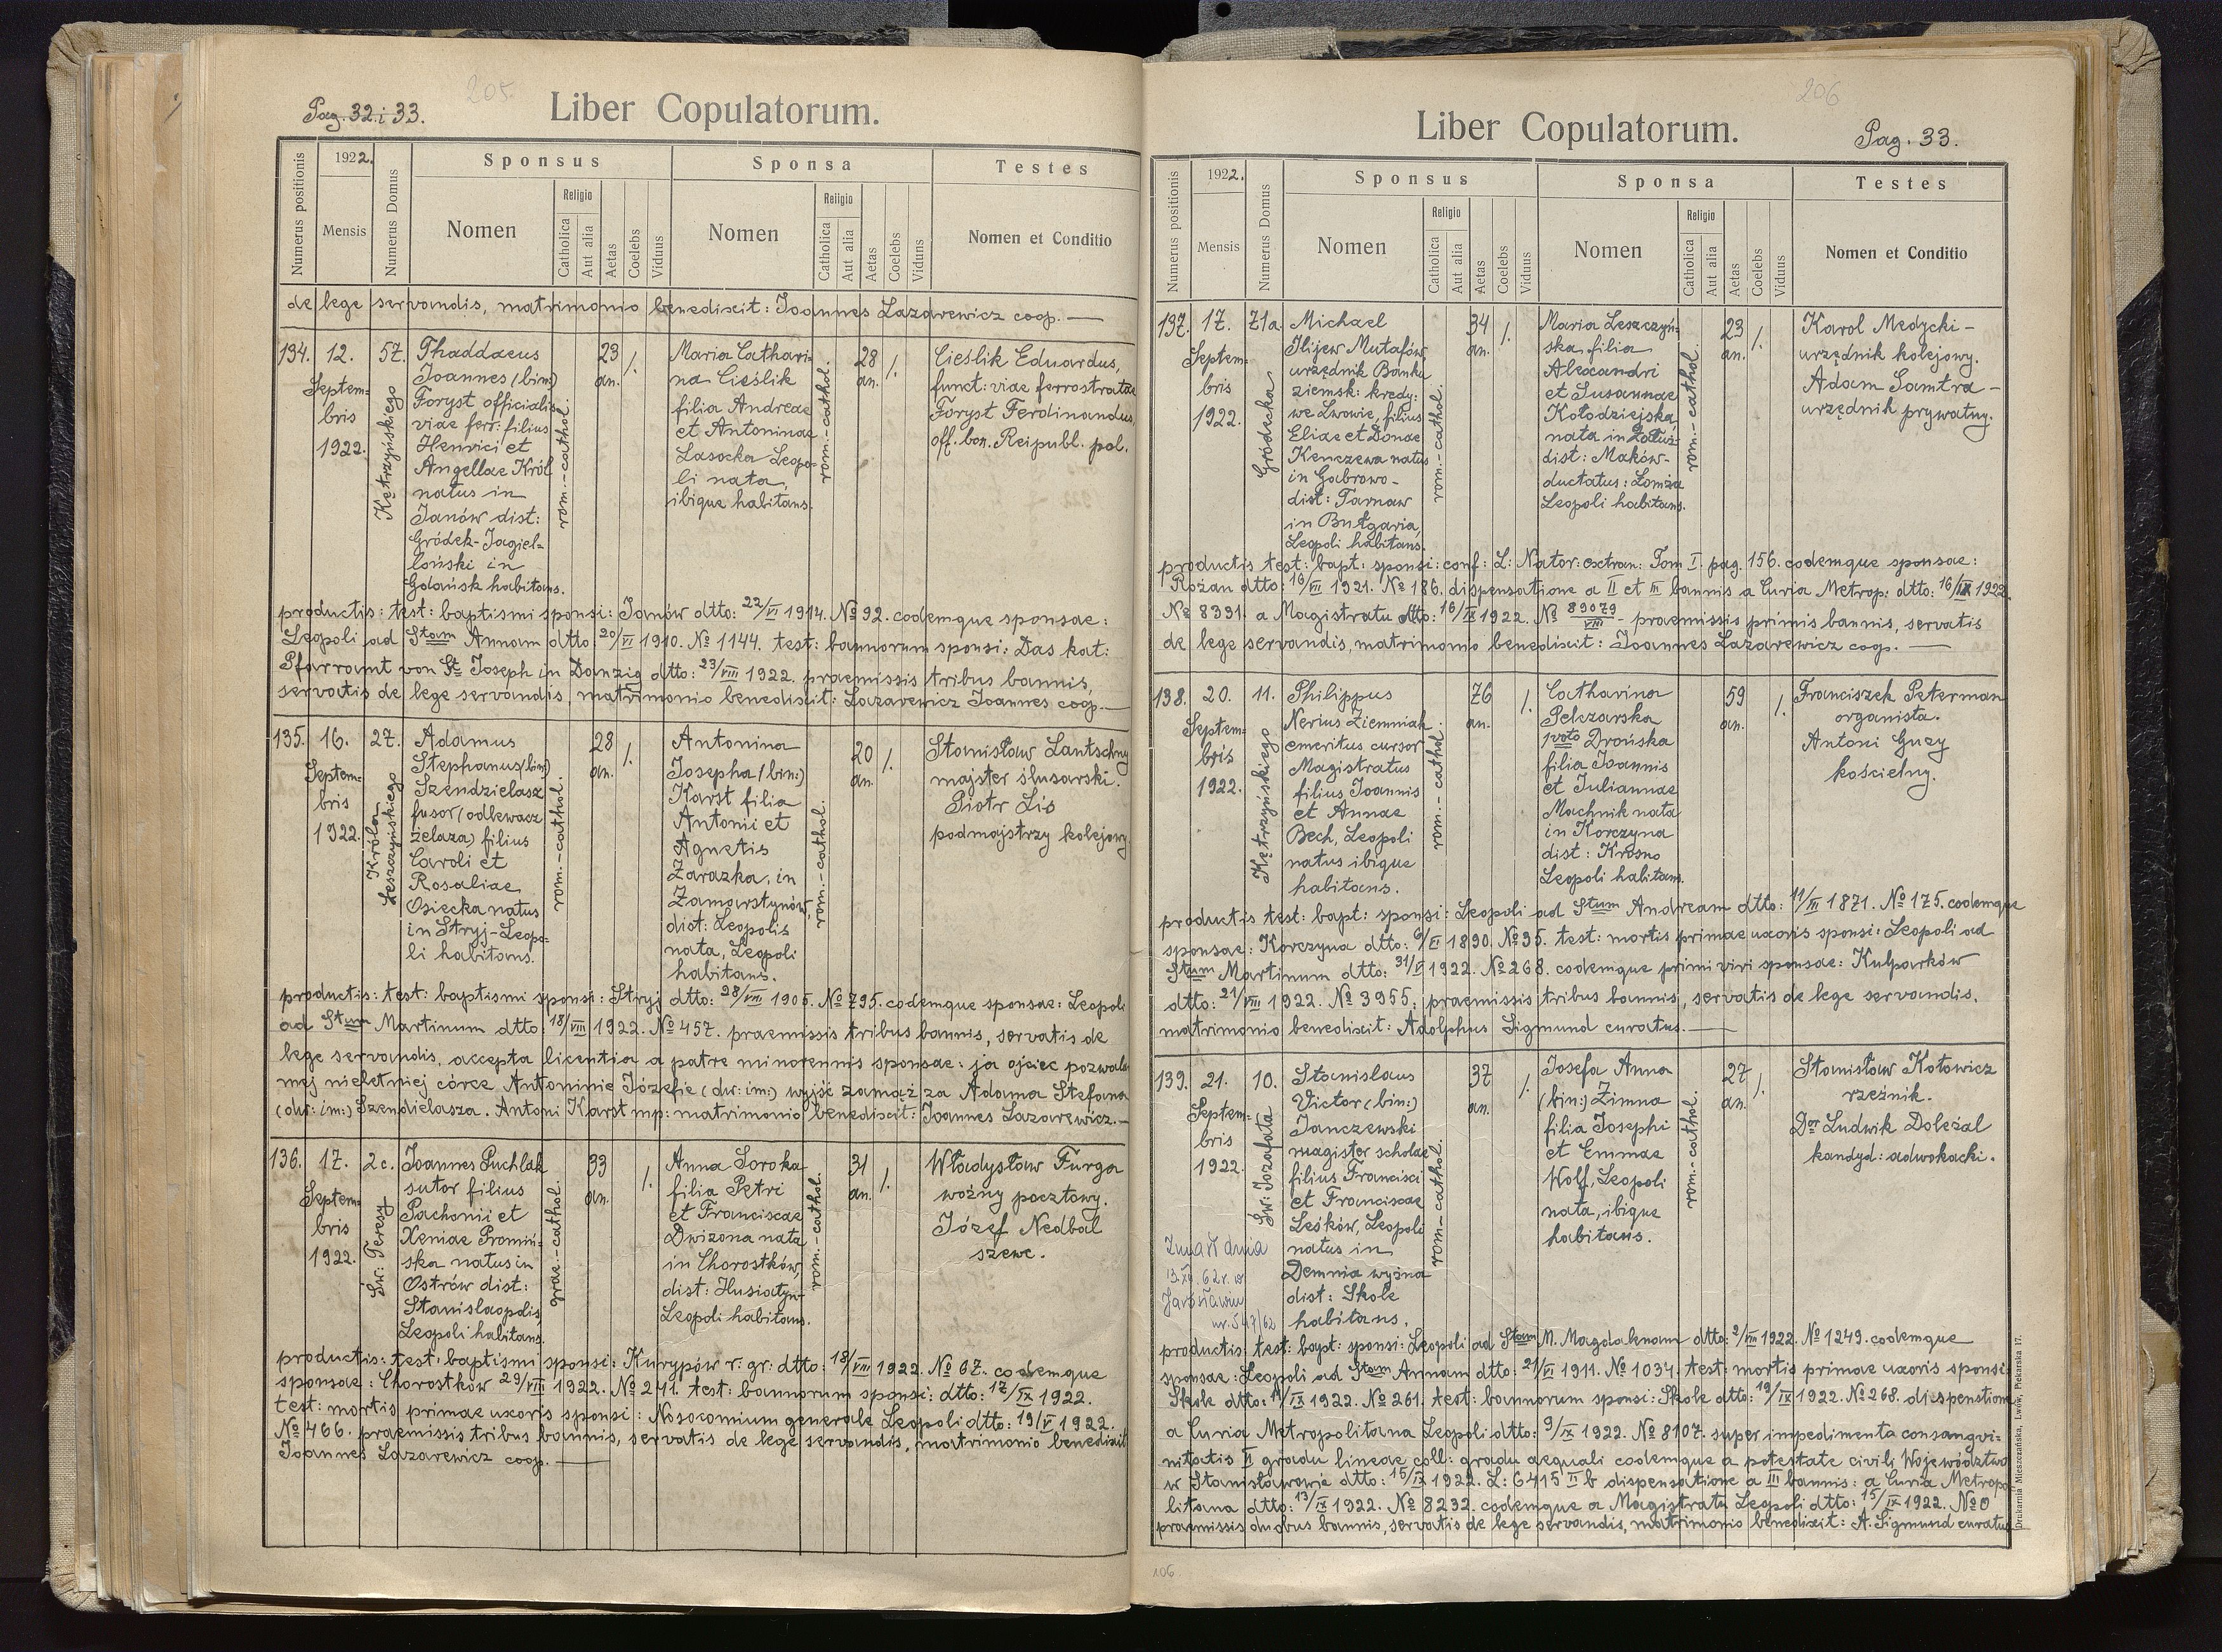 205.
Pag. 32 i 33.
Liber Copulatorum.
Numerus positionis
1922.
Mensis
Numerus Domus
Sponsus
Nomen
Religio
Catholica
Aut alia
Aetas
Coelebs
Viduus
Sponsa
Nomen
Religio
Catholica
Aut alia
Aetas
Coelebs
Viduus
Testes
Nomen et Conditio
de lege servandis, matrimonio benedixit: Joannes Lazarewicz coop.
134.
12.
Septem=
bris
1922.
57.
Kętrzyńskiego
Thaddaeus
Joannes (bim)
Foryst officialis
viae ferr: filius
Henrici et
Angellae Król
natus in
Janów dist:
Gródek-Jagiel=
loński in
Gdańsk habitans.
rom.-cathol.
23
an.
/.
Maria Cathari=
na Cieślik
filia Andreae
et Antoninae
Lasocka Leopo=
li nata,
ibique habitans.
rom.-cathol.
28
an.
/.
Cieślik Eduardus,
funct: viae ferrostratae
Foryst Ferdinandus,
off. bon. Reipubl. pol.
productis: test: baptismi sponsi: Janów dtto: 22/VI 1914. No 92. eodemque sponsae:
Leopoli ad Stam Annam dtto 20/VI 1910. No 1144. test: bannorum sponsi: Das kat:
Pfarramt von St Joseph in Danzig dtto: 23/VIII 1922. praemissis tribus bannis,
servatis de lege servandis, matrimonio benedixit: Lazarewicz Joannes coop.
135.
16.
Septem=
bris
1922.
27.
Królowej
Adamus
Stephanus (bim)
Szendzielasz
fusor (odlewacz
żelaza) filius
Caroli et
Rosaliae
Osiecka natus
in Stryj-Leopo=
li habitans.
rom.-cathol.
28
an.
/.
Antonina
Josepha (bin:)
Karst filia
Antonii et
Agnetis
Zarazka, in
Zamarstynów,
dict: Leopolis
nata, Leopoli
habitans.
rom.-cathol.
20
an.
/.
Stanisław Lantschny
majster ślusarski.
Piotr Lis
podmajstrzy kolejowy
productis: test: baptismi sponsi: Stryj dtto: 28/VIII 1905. No 795. eodemque sponsae: Leopoli
ad Stum Martinum dtto: 18/VIII 1922. No 457. praemissis tribus bannis, servatis de
lege servandis, accepta licentia a patre minorennis sponsae: ja ojciec pozwalam
mej nieletniej córce Antoninie Józefie (dw: im:) wyjść zamąż za Adama Stefana
(dw: im:) Szendielasza. Antoni Karst mp: matrimonio benedixit: Joannes Lazarewicz.
136.
17.
Septem=
bris
1922.
2c.
Św: Teresy
Joannes Puchlak
sutor filius
Pachonii et
Xeniae Promiń=
ska natus in
Ostrów dist:
Stanislaopolis
Leopoli habitans.
grae.-cathol.
33
an.
/.
Anna Soroka
filia Petri
et Franciscae
Dwizona nata
in Chorostków,
dist: Husiatyn-
Leopoli habitans.
rom.-cathol.
31
an.
/.
Władysław Furga
woźny pocztowy.
Józef Nedbal
szewc.
productis: test: baptismi sponsi: Kurypów r: gr: dtto: 18/VIII 1922. No 67. eodemque
sponsae: Chorostków 29/VIII 1922. No 241. test: bannorum sponsi: dtto: 17/IX 1922.
test: mortis primae uxoris sponsi: Nosocomium generale Leopoli dtto: 19/V 1922.
No 466. praemissis tribus bannis, servatis de lege servandis, matrimonio benedixit
Joannes Lazarewicz coop.
206
Liber Copulatorum.
Pag. 33.
Numerus positionis
1922.
Mensis
Numerus Domus
Sponsus
Nomen
Religio
Catholica
Aut alia
Aetas
Coelebs
Viduus
Sponsa
Nomen
Religio
Catholica
Aut alia
Aetas
Coelebs
Viduus
Testes
Nomen et Conditio
137.
17.
Septem=
bris
1922.
71a.
Gródecka
Michael
Ilijew Mutafów,
urzędnik Banku
ziemsk: kredy:
we Lwowie, filius
Eliae et Donae
Kenczewa natus
in Gabrowo-
dist: Tarnaw
in Bułgaria,
Leopoli habitans.
rom.-cathol.
34
an.
/.
Maria Leszczyń=
ska filia
Alexandri
et Susannae
Kołodziejska,
nata in
dist: Maków-
ductatus: Łomża
Leopoli habitans.
rom.-cathol.
23
an.
/.
Karol Medycki-
urzędnik kolejowy.
Adam Samtra-
urzędnik prywatny.
productis test: bapt: sponsi: conf: L: Nator: extran: Tom I. pag. 156. eodemque sponsae:
Rożan dtto: 16/VII 1921. No 186. dispensatione a II et III bannis a Curia Metrop: dtto: 16/IX 1922.
No 8391. a Magistratu dtto: 16/IX 1922. No 89079/VIII - praemissis primis bannis, servatis
de lege servandis, matrimonio benedixit: Joannes Lazarewicz coop.
138.
20.
Septem=
bris
1922.
11.
Kętrzyńskiego
Philippus
Nerius Ziemniak
emeritus cursor
Magistratus
filius Joannis
et Annae
Bech, Leopoli
natus ibique
habitans.
rom.-cathol.
76
an.
/.
Catharina
Pelczarska
1voto Drońska
filia Joannis
et Juliannae
Machnik nata
in Korczyna
dist: Krosno
Leopoli habitans.
rom.-cathol.
59
an.
/.
Franciszek Peterman
organista.
Antoni Guzy
kościelny.
productis test: bapt: sponsi: Leopoli ad Stum Andream dtto: 11/III 1871. No 175. eodemque
sponsae: Korczyna dtto: 6/II 1890. No 35. test: mortis primae uxoris sponsi: Leopoli ad
Stum Martinum dtto: 31/V 1922. No 268. eodemque primi viri sponsae: Kulparków
dtto: 21/VIII 1922. No 3955, praemissis tribus bannis, servatis de lege servandis,
matrimonio benedixit: Adolphus Sigmund curatus.
139.
21.
Septem=
bris
1922.
10.
Św: Jozafata
Stanislaus
Victor (bin:)
Janczewski
magister scholae
filius Francisci
et Franciscae
Leśków, Leopoli
natus in
Demnia wyżna
dist: Skole
habitans.
rom-cathol.
37
an.
/.
Josefa Anna
(bin:) Zimna
filia Josephi
et Emmae
Wolf, Leopoli
nata, ibique
habitans.
rom.-cathol.
27
an.
/.
Stanisław Kotowicz
rzeźnik.
Dor Ludwik Doleżal
kandyd: adwokacki.
Zmarł dnia
62 r. w
Jarosławiu
nr. 547/62
productis: test: bapt: sponsi: Leopoli ad Stam M. Magdalenam dtto: 2/VIII 1922. No 1249. eodemque
sponsae: Leopoli ad Stam Annam dtto: 21/VI 1911. No 1034. test: mortis primae uxoris sponsi:
Skole dtto: 19/IX 1922. No 261. test: bannorum sponsi: Skole dtto: 19/IX 1922. No 268. dispenstione
a Curia Metropolitana Leopoli dtto: 9/IX 1922. No 8107. super impedimenta consangvi=
nitatis II gradu lineae coll: gradu aequali eodemque a potestate civili Województwo
w Stanisławowie dtto: 15/IX 1922. L: 6415 II b dispensatione a III bannis: a Curia Metropo=
litana dtto: 13/IX 1922. No 8232. eodemque a Magistratu Leopoli dtto: 15/IX 1922. No 0
praemissis duobus bannis, servatis de lege servandis, matrimonio benedixit: A. Sigmund curatus
Drukarnia Mieszczańska, Lwów, Piekarska 17.
106